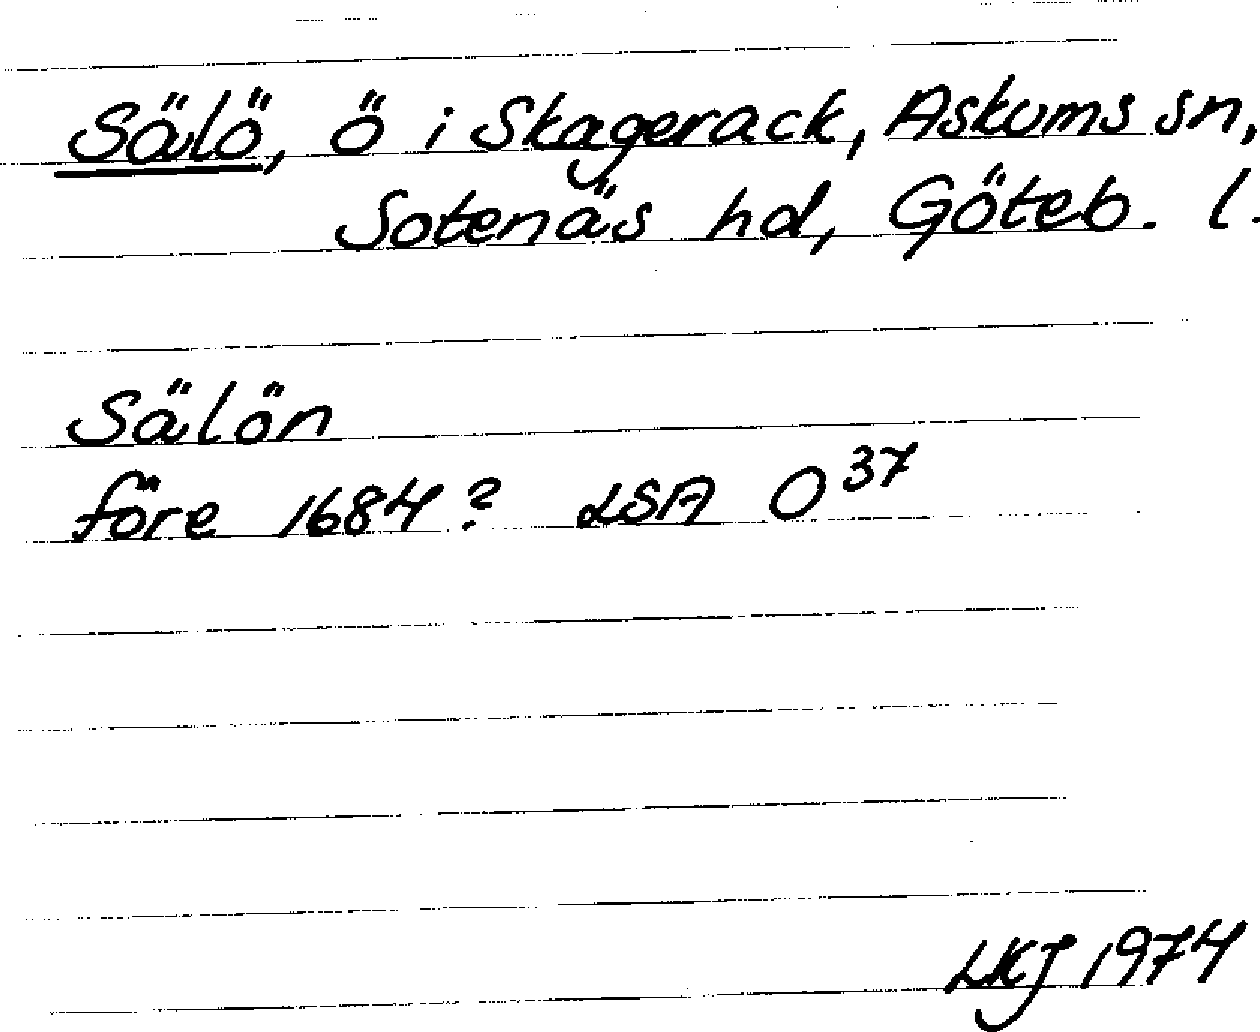 Sälö, ö i Skagerack, Askums sn,
Sotenäs hd, Göteb. l.
Sälön
före 1684? LSA O 37
LKJ 1974